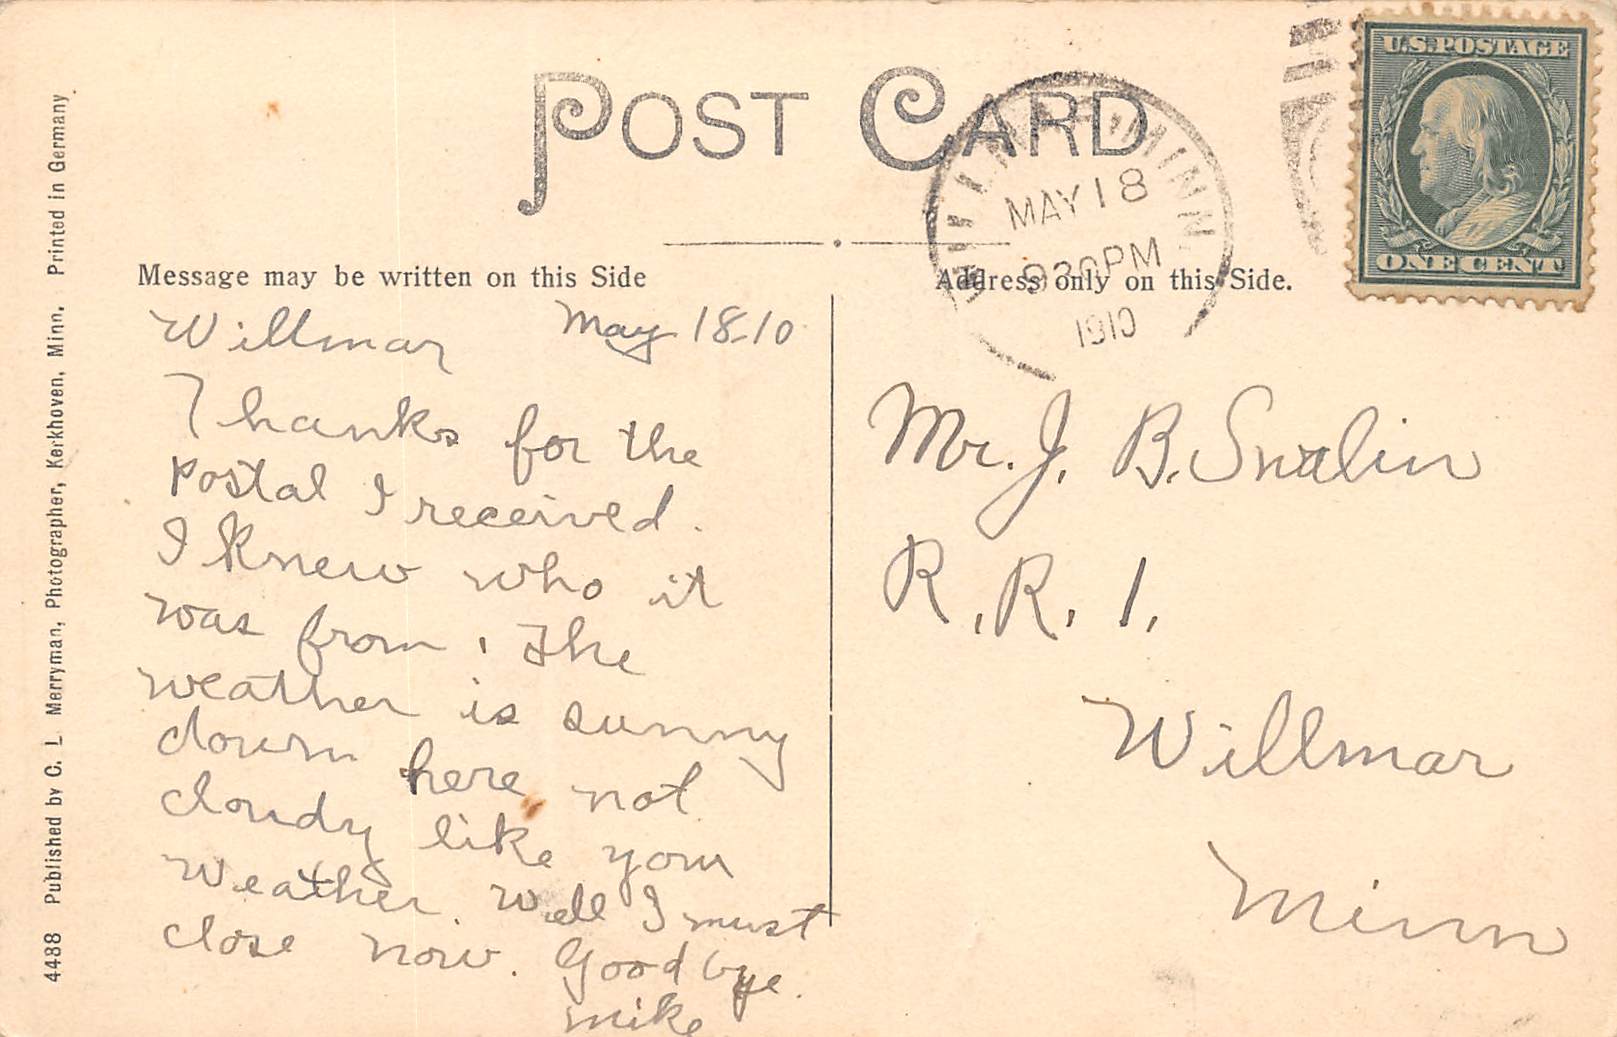 POST CARD
U.S. POSTAGE
ONE CENT
WILLMAR, MINN.
MAY 18
930 PM
1910
Message may be written on this Side
Address only on this Side.
Willmar May 18-10
Thanks for the
Postal I received.
I knew who it
was from. The
weather is sunny
down here not
cloudy like your
weather. Well I must
close now. Good bye.
Mike
Mr. J. B. Swalin
R. R. 1.
Willmar
Minn
4488 Published by C. L. Merryman, Photographer, Kerkhoven, Minn. Printed in Germany